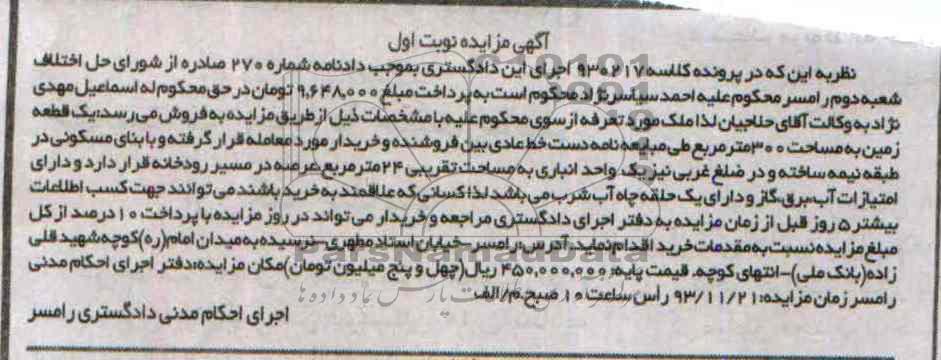 آگهی مزایده نوبت اول
نظر به این که در پرونده کلاسه ۹۳۰۲۱۷ اجرای این دادگستری بموجب دادنامه شماره ۲۷۰ صادره از شورای حل اختلاف
شعبه دوم رامسر محکوم علیه احمد سیاسرنژاد محکوم است به پرداخت مبلغ ۹,۶۴۸,۰۰۰ تومان در حق محکوم له اسماعیل مهدی
نژاد به وکالت آقای حلاجیان لذا ملک مورد تعرفه از سوی محکوم علیه با مشخصات ذیل از طریق مزایده به فروش می رسد: یک قطعه
زمین به مساحت ۳۰۰ متر مربع طی مبایعه نامه دست خط عادی بین فروشنده و خریدار مورد معامله قرار گرفته و با بنای مسکونی در
طبقه نیمه ساخته و در ضلع غربی نیز یک واحد انباری به مساحت تقریبی ۲۴ متر مربع عرصه در مسیر رودخانه قرار دارد و دارای
امتیازات آب،برق،گاز و دارای یک حلقه چاه آب شرب می باشد لذا؛ کسانی که علاقمند به خرید باشند می توانند جهت کسب اطلاعات
بیشتر ۵ روز قبل از زمان مزایده به دفتر اجرای دادگستری مراجعه و خریدار می تواند در روز مزایده با پرداخت ۱۰ درصد از کل
مبلغ مزایده نسبت به مقدمات خرید اقدام نماید. آدرس: رامسر_خیابان استاد مطهری_نرسیده به میدان امام(ره) کوچه شهید قلی
زاده(بانک ملی)_انتهای کوچه. قیمت پایه: ۴۵۰,۰۰۰,۰۰۰ ریال (چهل و پنج میلیون تومان) مکان مزایده: دفتر اجرای احکام مدنی
رامسر زمان مزایده: ۹۳/۱۱/۲۱ رأس ساعت ۱۰ صبح. م/الف
اجرای احکام مدنی دادگستری رامسر
ParsNamadData